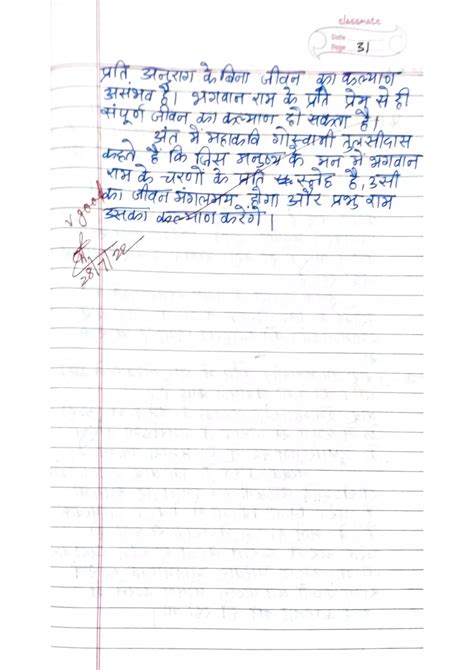 classmate
Date
Page 31
प्रति अनुराग के बिना जीवन का कल्याण
असंभव है। भगवान राम के प्रति प्रेम से ही
संपूर्ण जीवन का कल्याण हो सकता है।
अंत में महाकवि गोस्वामी तुलसीदास
कहते हैं कि जिस मनुष्य के मन में भगवान
राम के चरणों के प्रति स्नेह है, उसी
का जीवन मंगलमय होगा और प्रभु राम
उसका कल्याण करेंगे।
v good
28/7/22